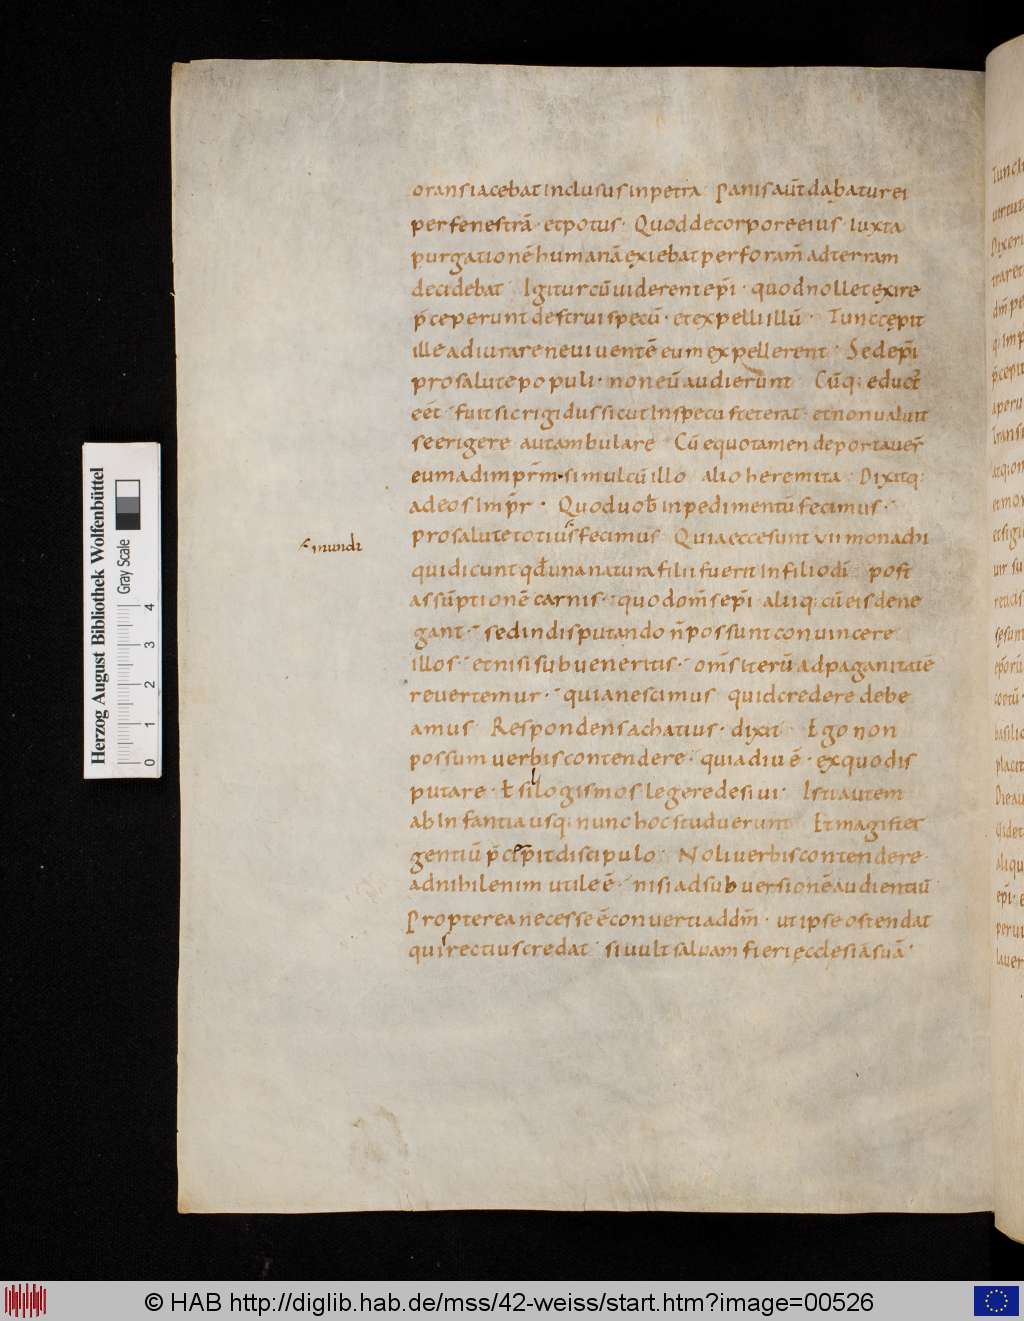 orans iacebat inclusus in petra · Panis aūt dabatur ei
per fenestrā · et potus · Quod de corpore eius · iuxta
purgationē humanā exiebat per foram̄ ad terram
decidebat · Igitur cū uiderent ep̄i · quod nollet exire
p̄ceperunt destrui specū · et expelli illū · Tunc cępit
ille adiurare ne uiuentē eum expellerent · Sed ep̄i
pro salute populi · non eū audierunt · Cūq; educt̄
eēt · fuit sic rigidus sicut In specu steterat · et non ualuit
se erigere aut ambulare · Cū equo tamen deportauer̄
eum ad impr̄m · simul cū illo alio heremita · Dixitq;
ad eos Imp̄r · Quod uob̄ inpedimentū fecimus ·
pro salute totius fecimus · Quia ecce sunt VII monachi
mundi
qui dicunt qd̄ una natura filii fuerit In filio dī · post
assūptionē carnis · quodom̄s ep̄i aliiq; cū eis dene
gant · sed in disputando n̄ possunt conuincere
illos · et nisi subueneritis · om̄s iterū ad paganitatē
reuertemur · quia nescimus quid credere debe
amus · Respondens achatius · dixit · Ego non
possum uerbis contendere · quia diu ē · ex quo dis
putare · ł sillogismos legere desiui · Isti autem
ab Infantia usq; nunc hoc studuerunt · Et magister
gentiū p̄cepit discipulo · Noli uerbis contendere ·
ad nihil enim utile ē · nisi ad subuersionē audientiū ·
Propterea necesse ē conuerti ad dm̄ · ut ipse ostendat
quis rectius credat · si uult saluam fieri ęcclesiā suā ·
Herzog August Bibliothek Wolfenbüttel
Gray Scale
0 1 2 3 4
© HAB http://diglib.hab.de/mss/42-weiss/start.htm?image=00526